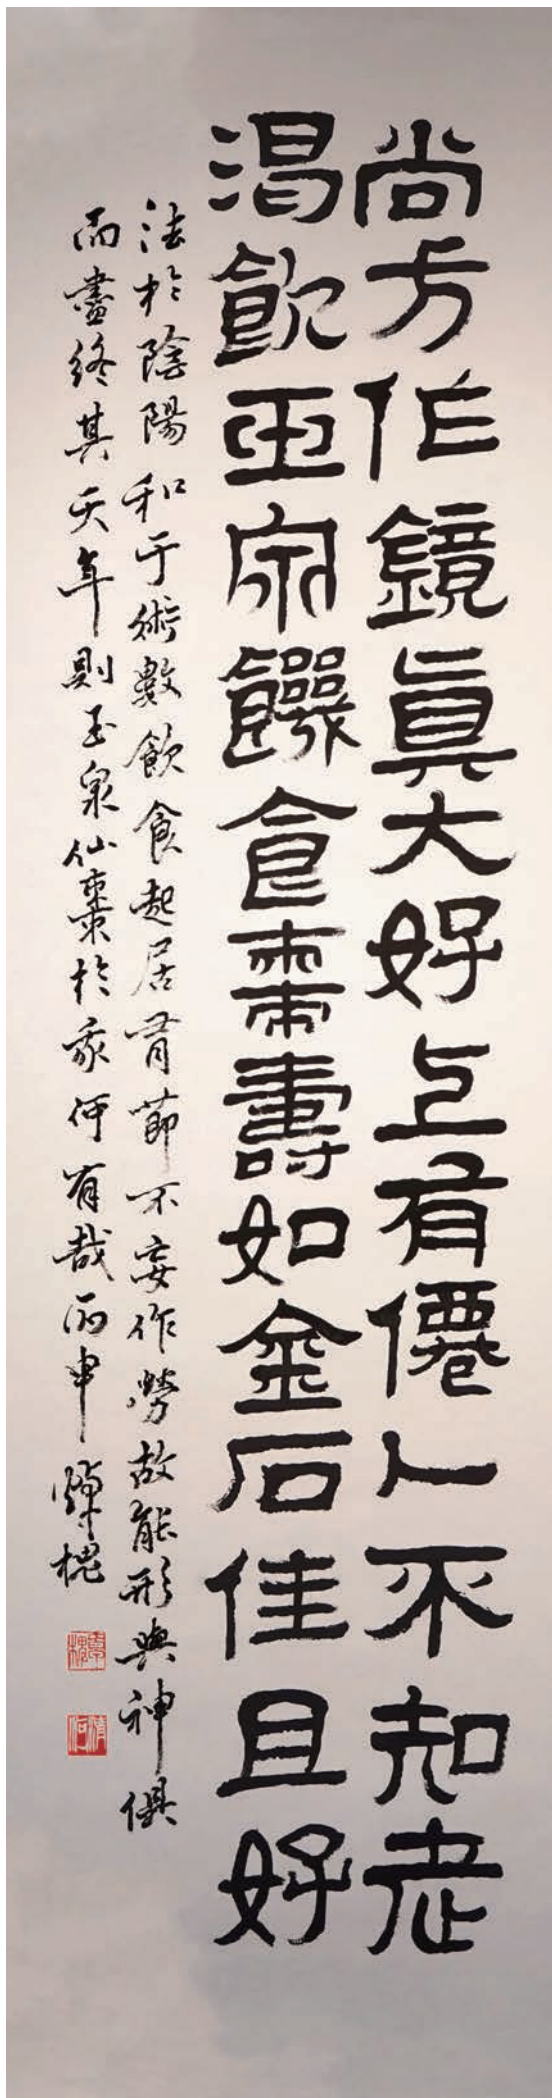 尚方作鏡眞大好上有僊人不知老
渴飲玉泉饑食棗壽如金石佳且好
法於陰陽和于術數飲食起居有節不妄作勞故能形與神俱
而盡終其天年則玉泉仙棗於我何有哉丙申槐